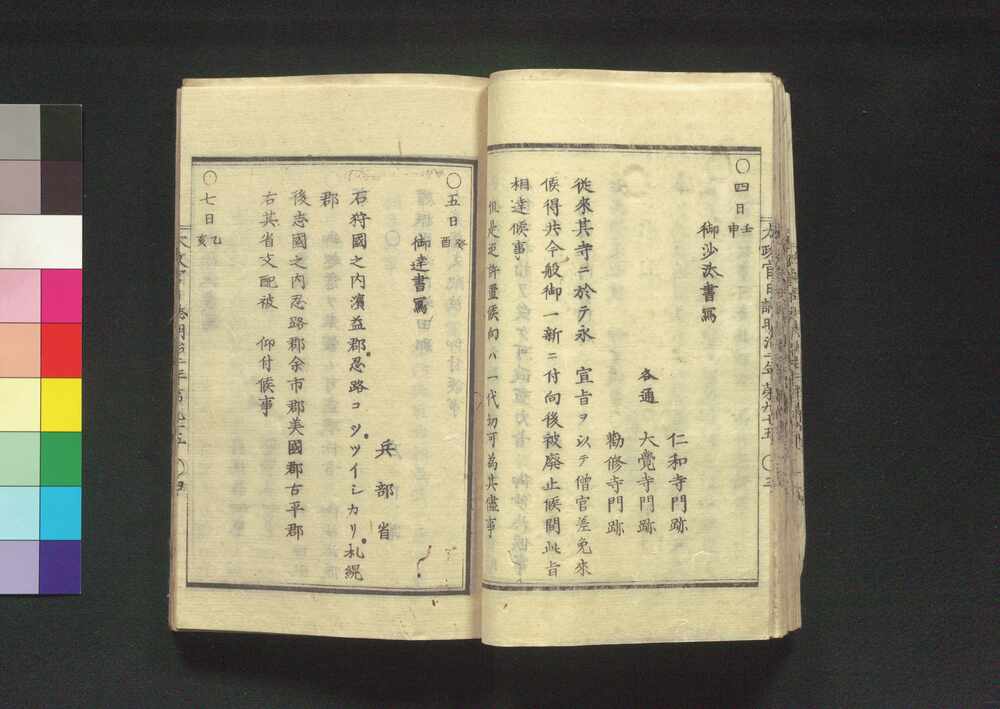 〇四日壬申
御沙汰書寫
仁和寺門跡
各通 大覺寺門跡
勸修寺門跡
從來其寺ニ於テ永 宣旨ヲ以テ僧官差免來
候得共今般御一新ニ付向後被廢止候間此旨
相達候事
但是迄許置候向ハ一代切可為其儘事
太政官日誌明治二年第九十五 〇三
〇五日癸酉
御達書寫
兵部省
石狩國之内濱益郡忍路コシツイシカリ札縨
郡
後志國之内忍路郡余市郡美國郡古平郡
右其省支配被 仰付候事
〇七日乙亥